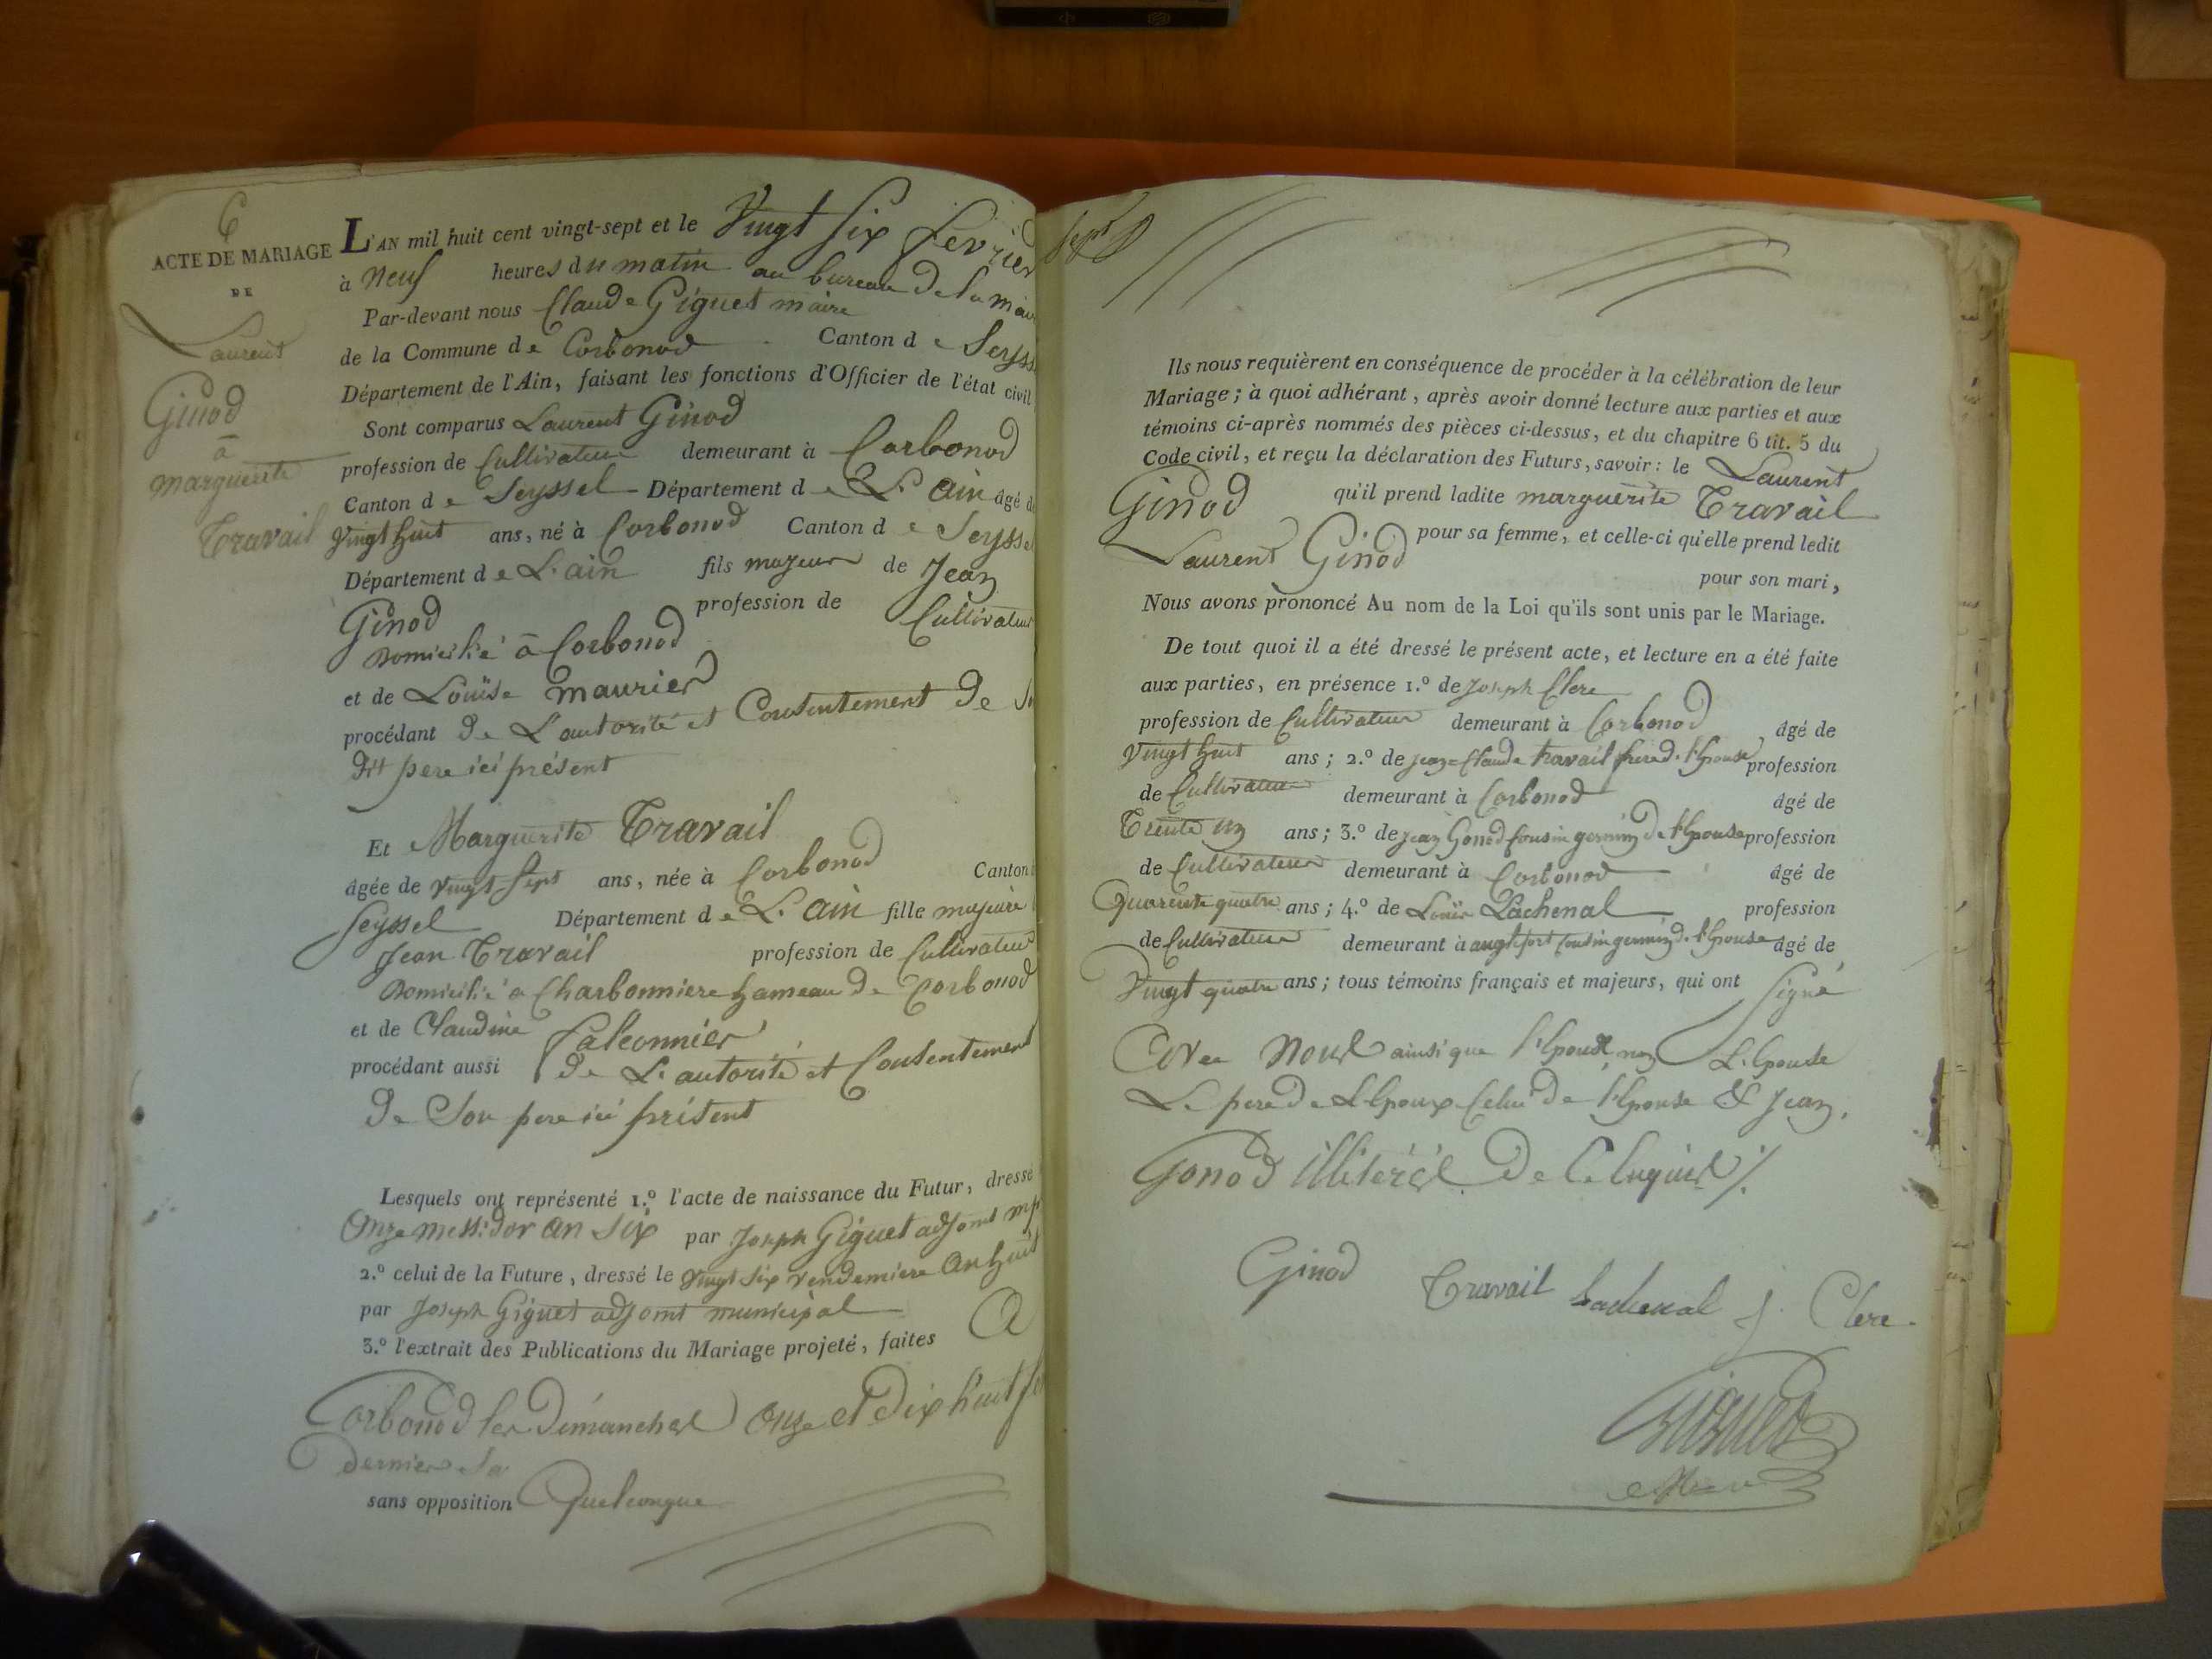 6
ACTE DE MARIAGE
DE
Laurent
Ginod
à
marguerite
Travail
L'AN mil huit cent vingt-sept et le Vingt Six fevrier
à Neuf heures du matin au bureau de la mair
Par-devant nous Claude Giguet maire
de la Commune de Corbonod Canton de Seyss
Département de l'Ain, faisant les fonctions d'Officier de l'état civil
Sont comparus Laurent Ginod
profession de Cultivateur demeurant à Corbonod
Canton de Seyssel Département de L'ain âgé de
Vingt huit ans, né à Corbonod Canton de Seyssel
Département de L'ain fils majeur de Jean
Ginod profession de Cultivateur
Domicilié à Corbonod
et de Louise maurier
procédant de L'autorité et Consentement de
dit pere ici présent
Et Marguerite Travail
âgée de vingt Sept ans, née à Corbonod Canton
Seyssel Département de L'ain fille majeure
Jean Travail profession de Cultivateur
Domicilié a Charbonniere hameau de Corbonod
et de Claudine falconnier
procédant aussi de L'autorité et Consentement
de Son pere ici présent
Lesquels ont représenté 1.º l'acte de naissance du Futur, dressé
Onze messidor an Six par Joseph Giguet adjoint
2.º celui de la Future, dressé le Vingt Six vendemiere an huit
par Joseph Giguet adjoint municipal
3.º l'extrait des Publications du Mariage projeté, faites A
Corbonod les Dimanches Onze et Dix huit
Dernier
sans opposition Quelconque
Sept
Ils nous requièrent en conséquence de procéder à la célébration de leur
Mariage; à quoi adhérant, après avoir donné lecture aux parties et aux
témoins ci-après nommés des pièces ci-dessus, et du chapitre 6 tit. 5 du
Code civil, et reçu la déclaration des Futurs, savoir: le Laurent
Ginod qu'il prend ladite marguerite Travail
pour sa femme, et celle-ci qu'elle prend ledit
Laurent Ginod pour son mari,
Nous avons prononcé Au nom de la Loi qu'ils sont unis par le Mariage.
De tout quoi il a été dressé le présent acte, et lecture en a été faite
aux parties, en présence 1.º de Joseph Clerc
profession de Cultivateur demeurant à Corbonod âgé de
Vingt huit ans; 2.º de jean-Claude travail frere de l'Epouse profession
de Cultivateur demeurant à Corbonod âgé de
Trente un ans; 3.º de jean Gonod Cousin germin de l'Epouse profession
de Cultivateur demeurant à Corbonod âgé de
Quarente quatre ans; 4.º de Louis Lachenal profession
de Cultivateur demeurant à anglefort Cousin germin de l'Epouse âgé de
Vingt quatre ans; tous témoins français et majeurs, qui ont Signé
avec Nous ainsi que l'Epoux non L'Epouse
Le pere de L'Epoux Celui de l'Epouse & Jean
Gonod illiterés De Ce Enquis
Ginod Travail Lachenal J. Clerc
Giguet
Maire